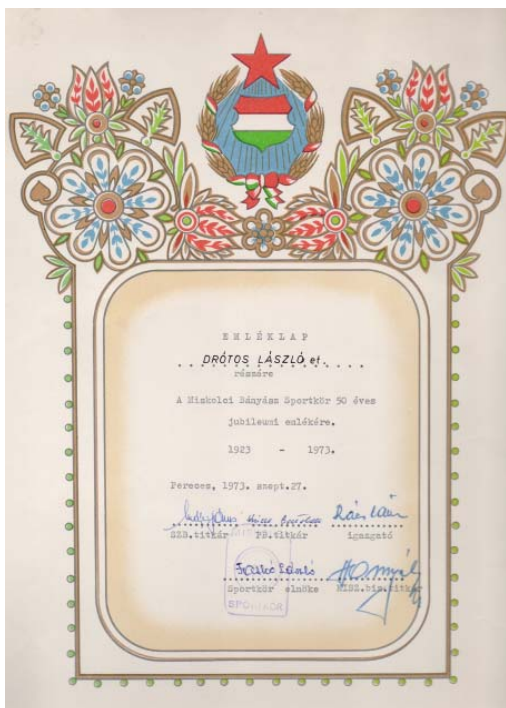 EMLÉKLAP
DRÓTOS LÁSZLÓ et.
részére
A Miskolci Bányász Sportkör 50 éves
jubileumi emlékére.
1923 - 1973.
Pereces, 1973. szept.27.
SZB.titkár PB.titkár igazgató
Sportkör elnöke KISZ.biz.titkár
SPORTKÖR